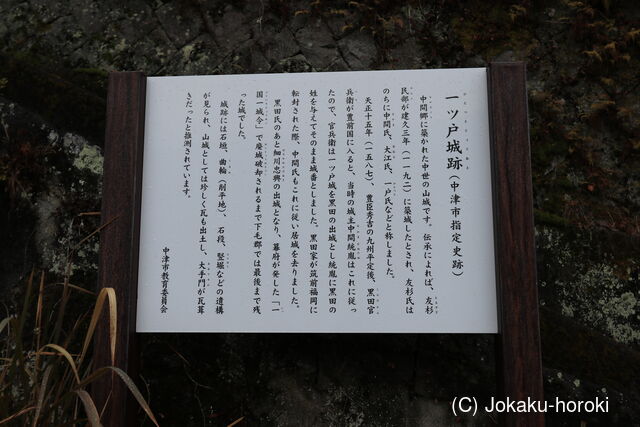 一ツ戸城跡（中津市指定史跡）
中間郷に築かれた中世の山城です。伝承によれば、友杉
民部が建久三年（一一九二）に築城したとされ、友杉氏は
のちに中間氏、大江氏、一戸氏などと称しました。
天正十五年（一五八七）、豊臣秀吉の九州平定後、黒田官
兵衛が豊前国に入ると、当時の城主中間統胤はこれに従っ
たので、官兵衛は一ツ戸城を黒田の出城とし統胤に黒田の
姓を与えてそのまま城番としました。黒田家が筑前福岡に
転封された際、中間氏もこれに従い居城を去りました。
黒田氏のあと細川忠興の出城となり、幕府が発した「一
国一城令」で廃城破却されるまで下毛郡では最後まで残
った城でした。
城跡には石垣、曲輪（削平地）、石段、竪堀などの遺構
が見られ、山城としては珍しく瓦も出土し、大手門が瓦葺
きだったと推測されています。
中津市教育委員会
(C) Jokaku-horoki